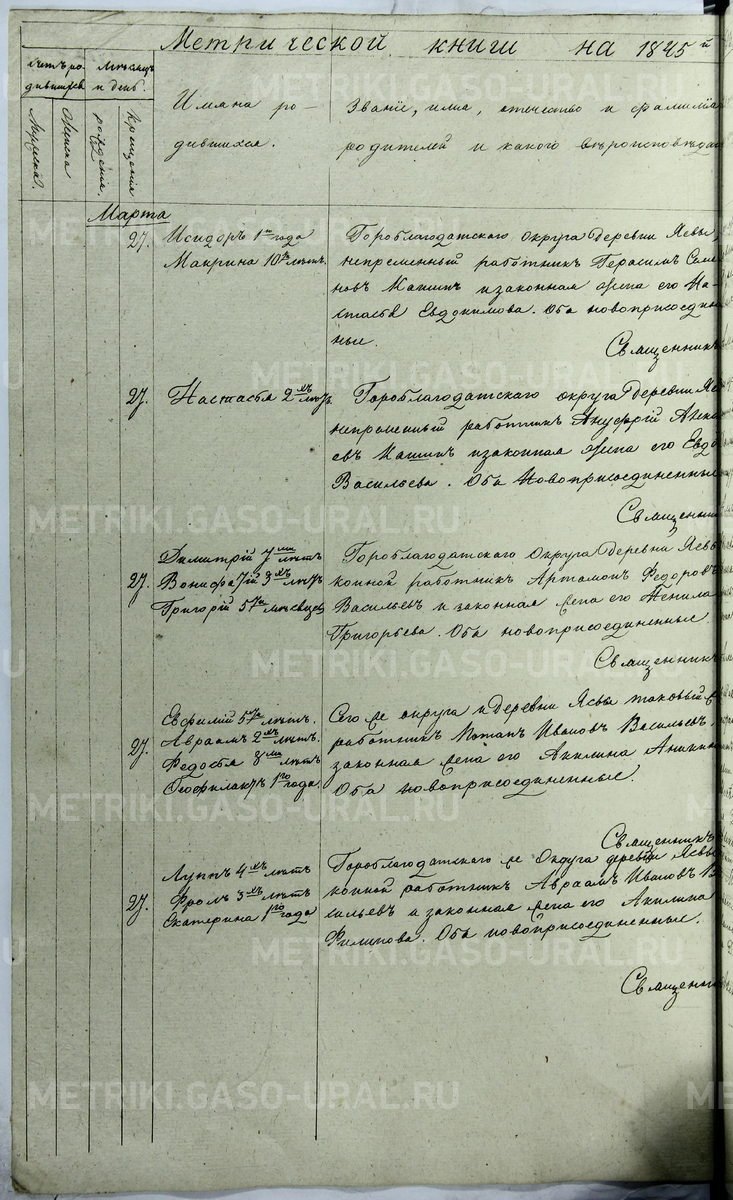 Метрической книги на 1845й
Счетъ ро-
дившихся
Мужеска.
Женска
Мѣсяцъ
и день.
рождѣнія.
крещенія
Имяна ро-
дившихся.
Званіе, имя, отечество и фамилія
родителей и какого вѣроисповѣдан
Марта
27.
Исидоръ 1го года
Макрина 10 лѣтъ.
Гороблагодатскаго округа деревни Ясвы,
непременный работникъ Герасимъ Семе
новъ Машинъ и законная жена его На-
стасья Евдокимова. Оба новоприсоедин
ные.
Священникъ
27.
Настасья 2хъ лѣтъ.
Гороблагодатскаго округа деревни Яс
непременный работникъ Ануфрій Алек
евъ Машинъ и законная жена его Евдо
Васильева. Оба Новоприсоединенные
Священни
27.
Димитрій 7ми лѣтъ
Вонифатій 3хъ лѣтъ
Григорій 5ти мѣсяцов
Гороблагодатскаго Округа деревни Ясвы
конной работникъ Артамонъ Федоровъ
Васильевъ и законная жена его Ненила
Григорьева. Оба новоприсоединенные.
Священникъ
27.
Евфимій 5ти лѣтъ.
Авраамъ 2хъ лѣтъ.
Федосья 8ми лѣтъ
Феофилактъ 1го года.
Сего же округа и деревни Ясвы таковый ж
работникъ Потапъ Ивановъ Васильевъ и
законная жена его Акилина Аники
Оба новоприсоединенные.
Священникъ
27.
Луппъ 4хъ лѣтъ
Фролъ 3хъ лѣтъ
Екатерина 1го года
Гороблагодатскаго же Округа деревни Ясвы
конной работникъ Авраамъ Ивановъ Ва
сильевъ и законная жена его Акилина
Филипова. Оба новоприсоединенные.
Священни
METRIKI.GASO-URAL.RU